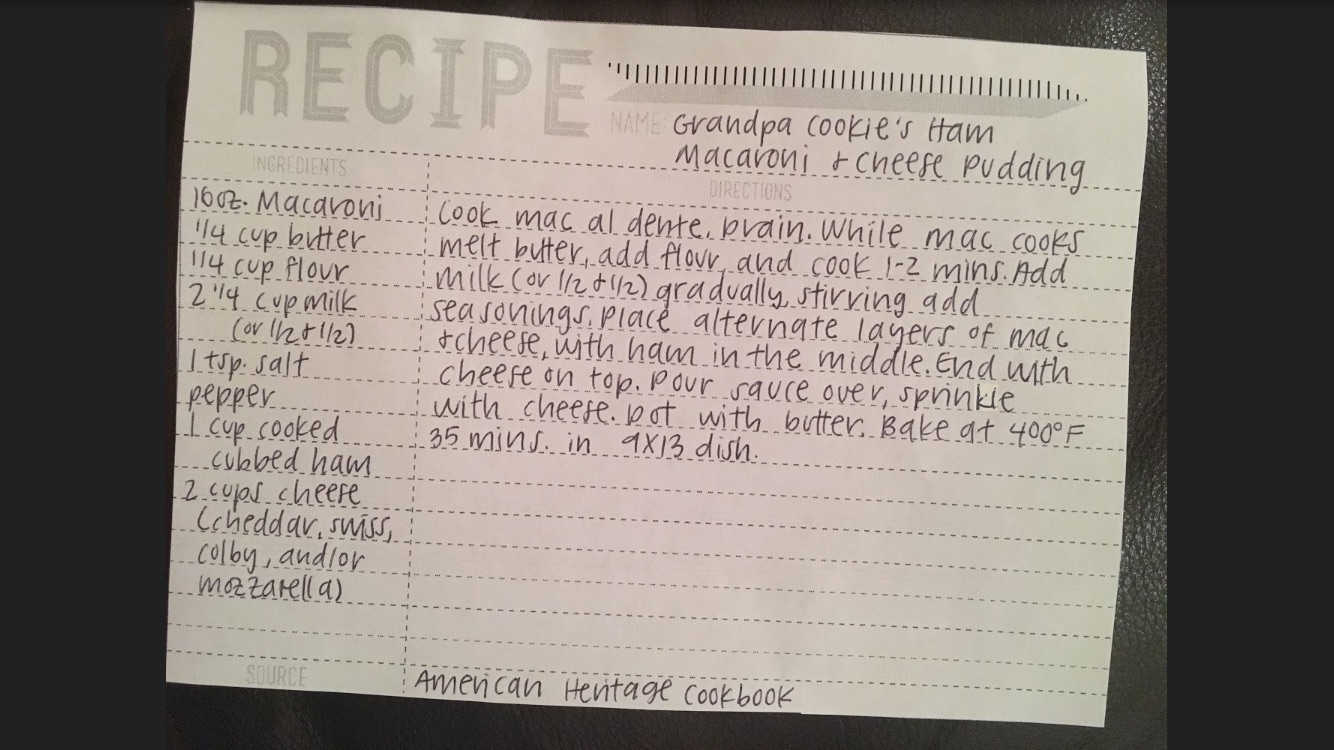 RECIPE
NAME Grandpa Cookie's Ham
Macaroni + Cheese Pudding
INGREDIENTS
16oz. Macaroni
1/4 cup butter
1/4 cup flour
2 1/4 cup milk
(or 1/2 + 1/2)
1 tsp. salt
pepper
1 cup cooked
cubbed ham
2 cups cheese
(cheddar, swiss,
colby, and/or
mozzarella)
DIRECTIONS
Cook mac al dente. Drain. While mac cooks
melt butter, add flour, and cook 1-2 mins. Add
milk (or 1/2 + 1/2) gradually, stirring add
seasonings. Place alternate layers of mac
+ cheese, with ham in the middle. End with
cheese on top. Pour sauce over, sprinkle
with cheese. Dot with butter. Bake at 400°F
35 mins. in 9X13 dish.
SOURCE
American Heritage Cookbook